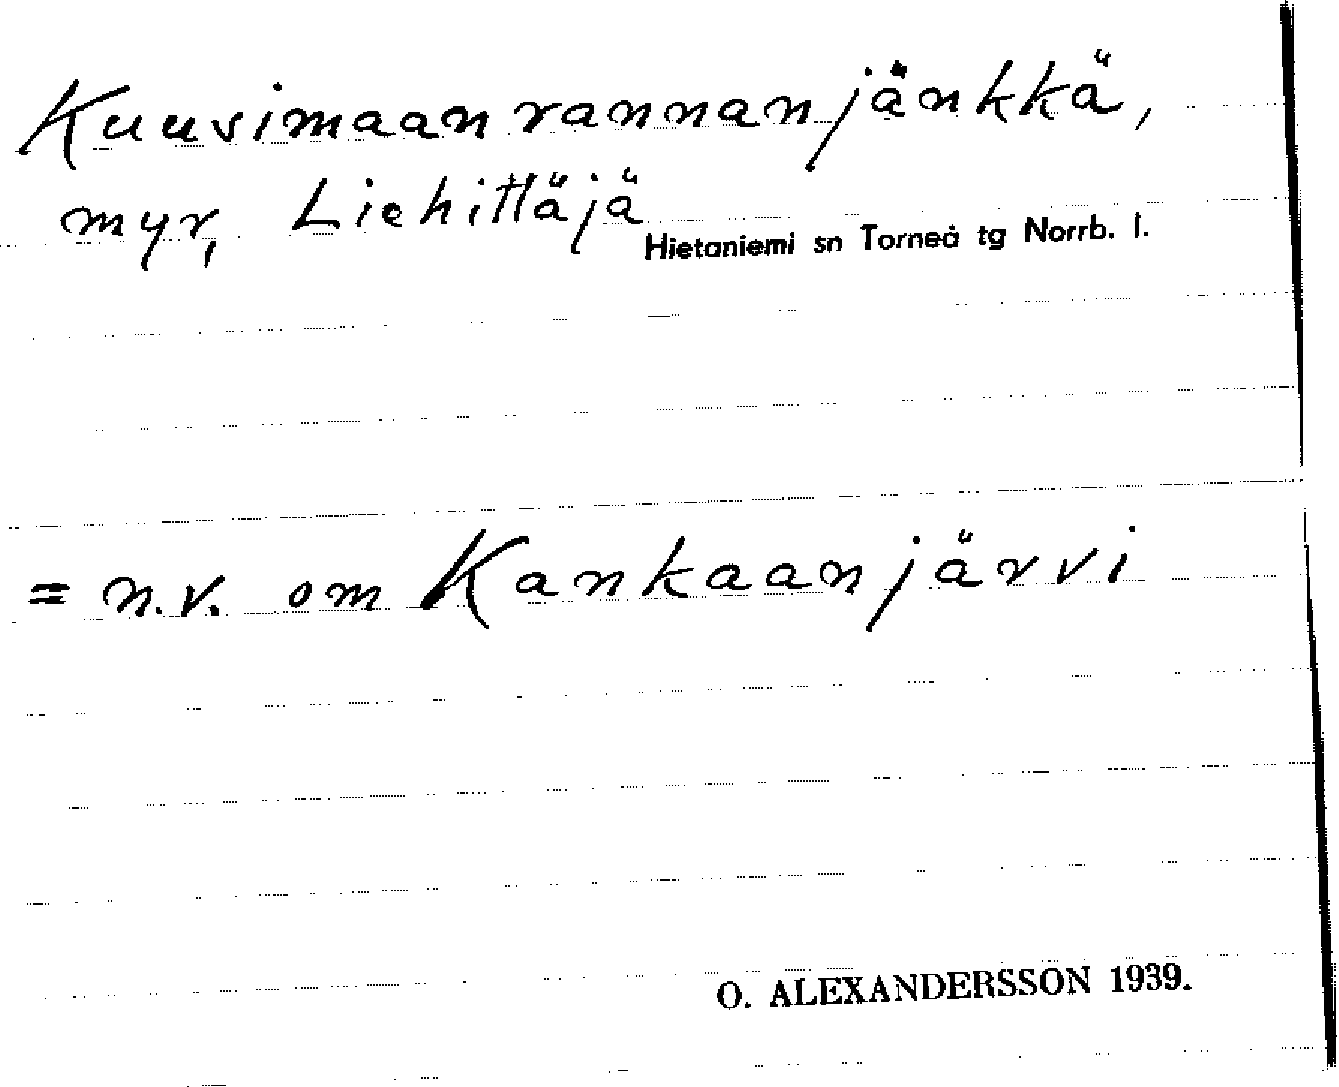 Kuusimaanrannanjänkkä,
myr, Liehittäjä
Hietaniemi sn Torneå tg Norrb. l.
= n.v. om Kankaanjärvi
O. ALEXANDERSSON 1939.